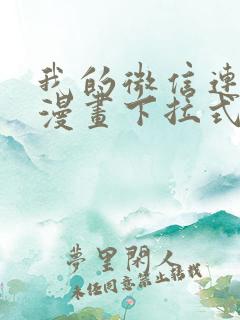 我的微信連
漫畫下拉式
夢里閑人
未经同意禁止转载